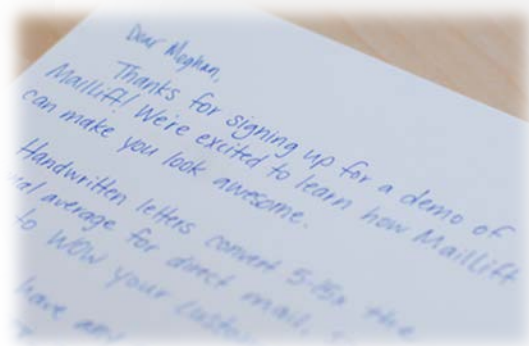 Dear Meghan,
Thanks for signing up for a demo of
Maillift! We're excited to learn how Maillift
can make you look awesome.
Handwritten letters convert 5-15x the
average for direct mail,
to WOW your
have any